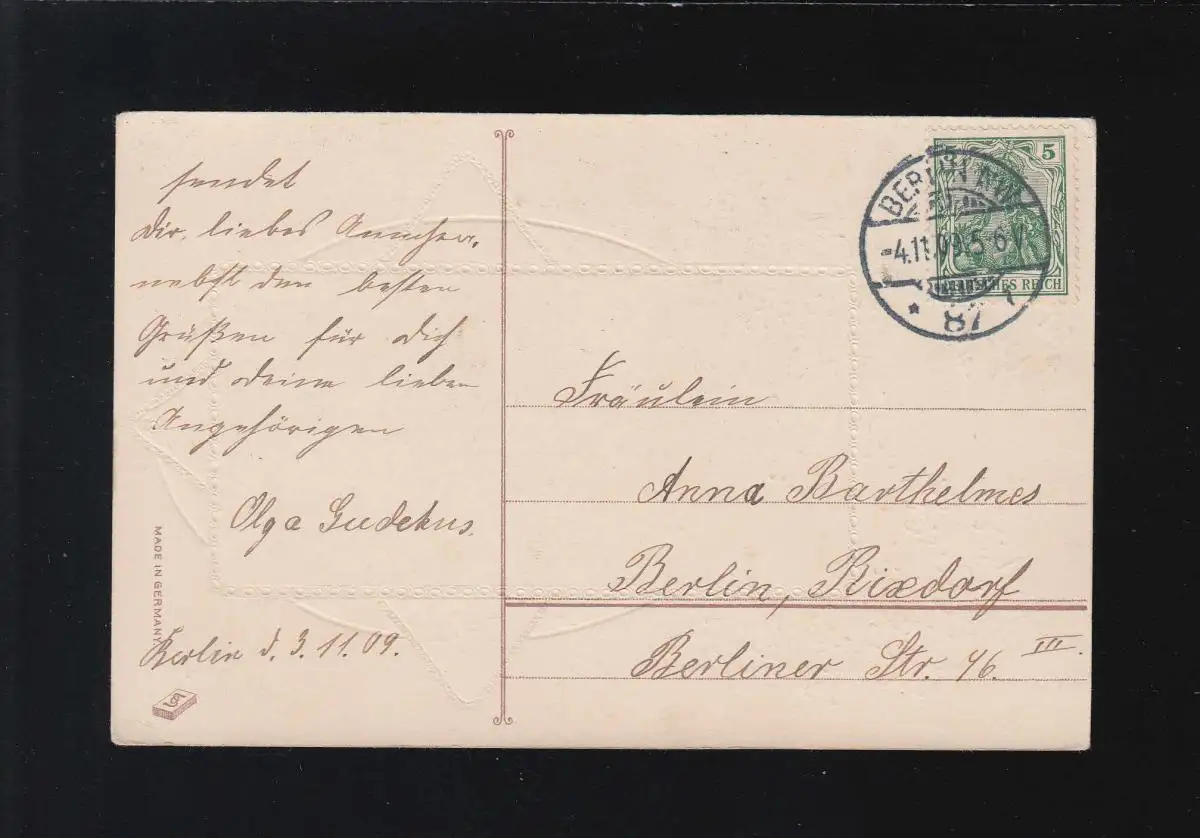 sendet
Dir, liebes Annchen,
nebst den besten
Grüßen für Dich
und deine lieben
Angehörigen
Olga Gudekus.
Berlin d. 3. 11. 09.
MADE IN GERMANY
5
BERLIN N.W.
-4.11.09.5-6 V.
* 87
DEUTSCHES REICH
Fräulein
Anna Barthelmes
Berlin, Rixdorf
Berliner Str. 46. III.